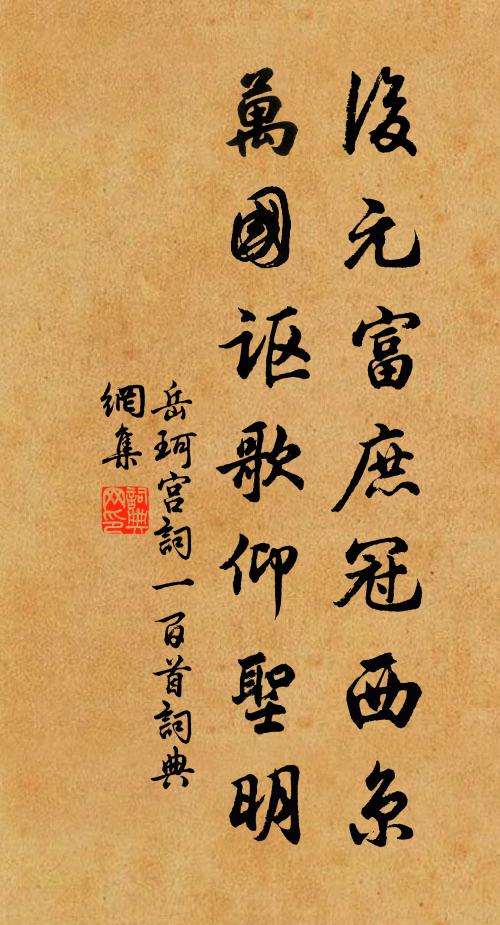 後元富庶冠西京
萬國謳歌仰聖明
岳珂宫詞一百首詞典
網集
詞典
网印